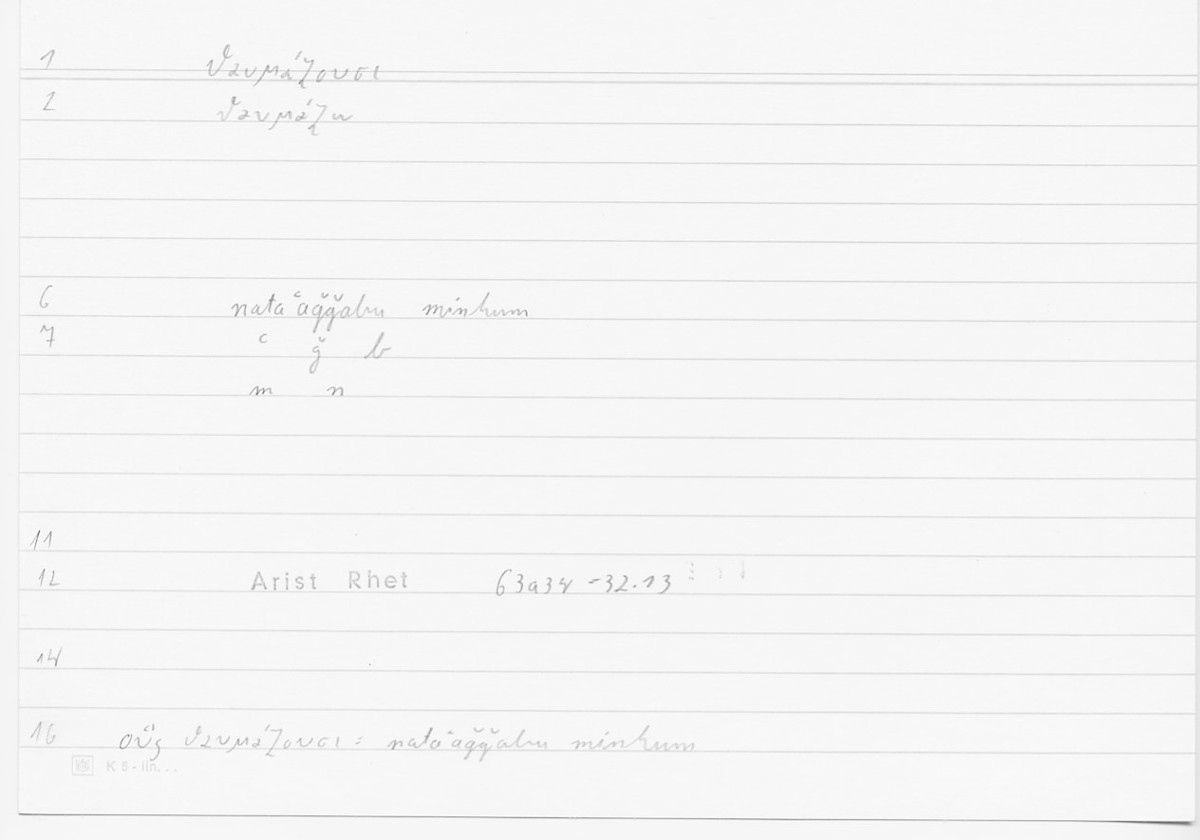 1 θαυμάζουσι
2 θαυμάζω
6 nataʿaǧǧabu minhum
7 ʿ ǧ b
m n
11
12 Arist Rhet 63a34 -32.13
14
16 οὓς θαυμάζουσι : nataʿaǧǧabu minhum
K 5 - lin...